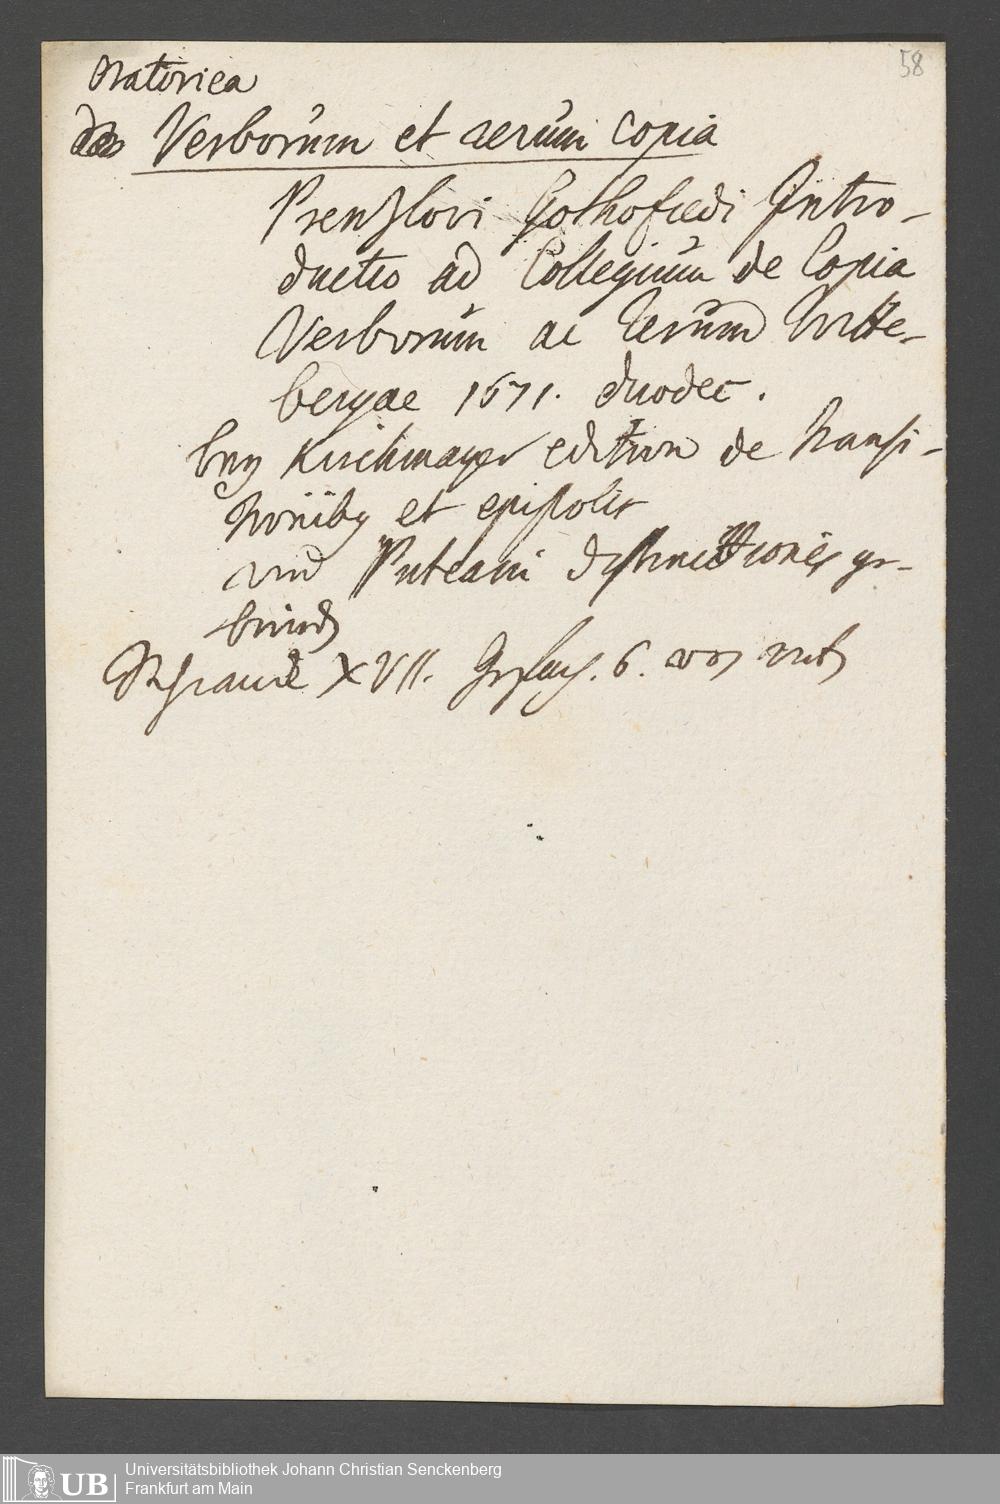 58
Oratorica
de Verborum et rerum copia
Prenzlovi Gothofredi Intro-
ductio ad Collegium de Copia
Verborum ac Rerum Witte-
bergae 1671. duodec.
bey Kirchmayer edition de Transi-
tionibus et epistolis
und Puteani distinctiones ge-
bunden
Schranck XVII. Gefach. 6. von unten
UB Universitätsbibliothek Johann Christian Senckenberg
Frankfurt am Main